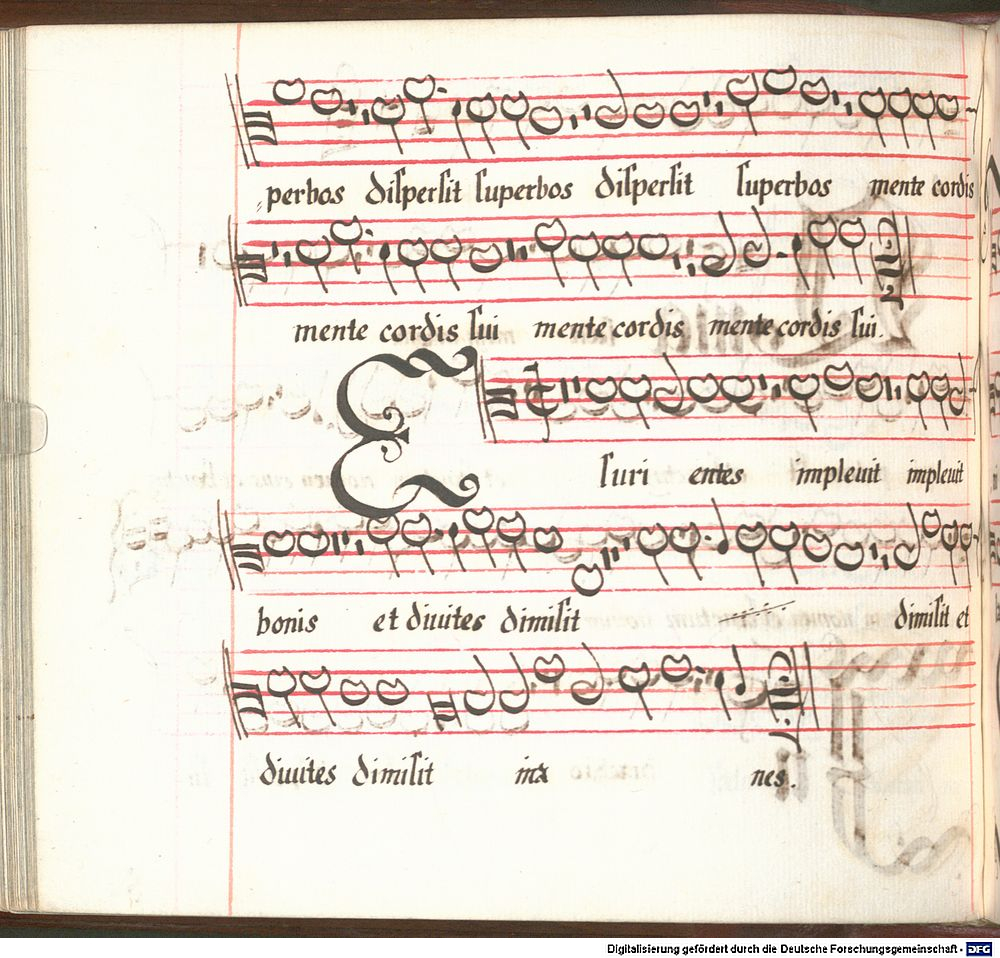 perbos diſperſit ſuperbos diſperſit ſuperbos mente cordis
mente cordis ſui mente cordis mente cordis ſui.
E
ſuri entes impleuit impleuit
bonis et diuites dimiſit dimiſit et
diuites dimiſit ina nes.
Digitalisierung gefördert durch die Deutsche Forschungsgemeinschaft - DFG